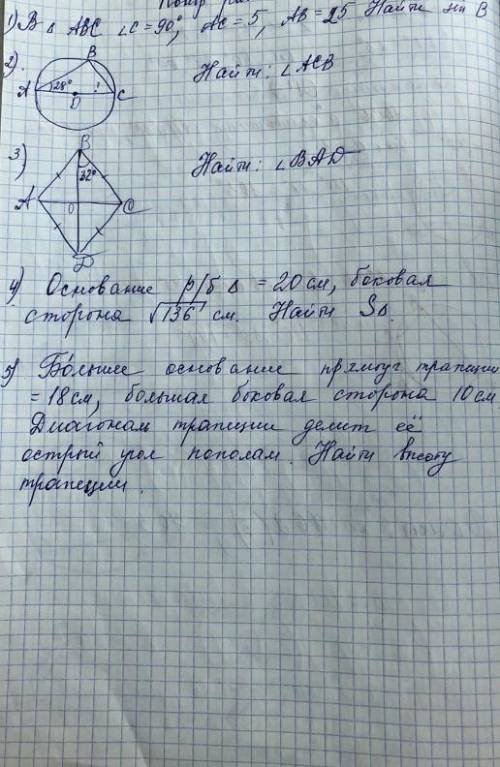 1) В Δ АВС ∠С = 90°, АС = 5, АВ = 25 Найти sin В
2).
В
А
28°
?
С
D
Найти: ∠АСВ
3)
В
32°
А
О
С
D
Найти: ∠ВАD
4) Основание р/б Δ = 20 см, боковая
сторона √136 см. Найти SΔ
5) Бо́льшее основание прямоуг трапеции
= 18 см, большая боковая сторона 10 см
Диагональ трапеции делит её
острый угол пополам. Найти высоту
трапеции.